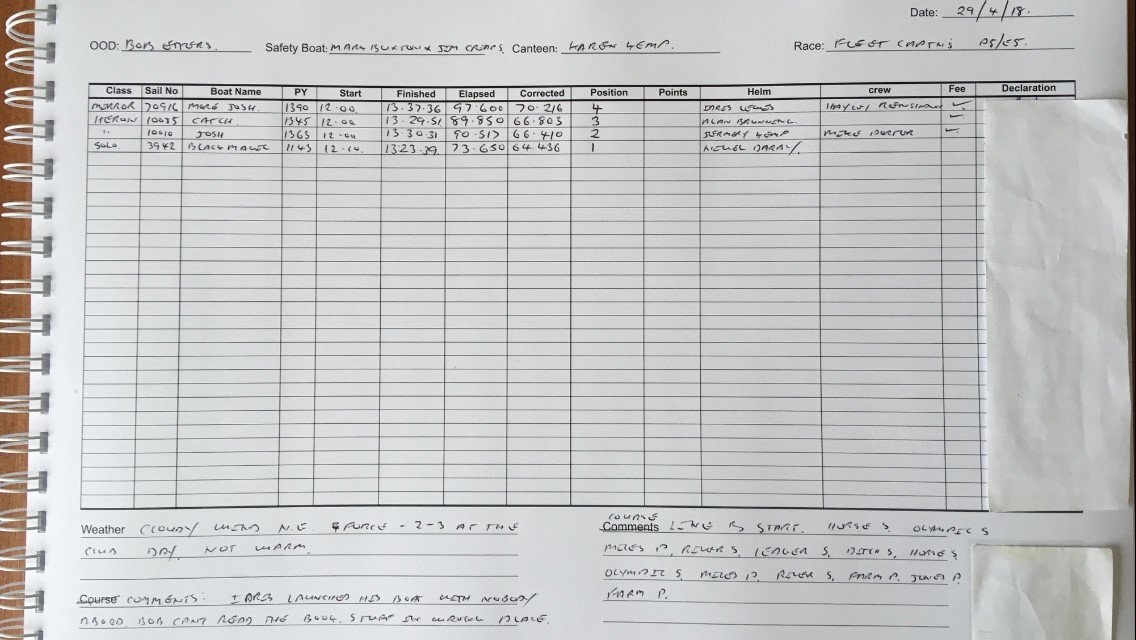 Date: 29/4/18.
OOD: BOB Safety Boat: MARK BUXTON & JIM Canteen: KAREN KEMP. Race: FLEET CAPTN'S PS/ES.
Class Sail No Boat Name PY Start Finished Elapsed Corrected Position Points Helm crew Fee Declaration
MIRROR 70916 MORE JOSH. 1390 12.00 13.37.36 97.600 70.216 4 IDRIS ✓
HERON 10035 CATCH. 1345 12.00 13.29.51 89.850 66.803 3 ALAN ✓
" 10010 JOSH 1365 12.00 13.30.31 90.517 66.410 2 JEREMY KEMP MIKE ✓
SOLO 3942 BLACK MAGIC 1143 12.10. 13.23.39 73.650 64.436 1 NIGEL DARBY.
Weather CLOUDY WIND N.E. FORCE - 2-3 AT THE
CLUB DAY NOT WARM.
COURSE
Comments LINE B START. HORSE S. OLYMPIC S
MILES P. RIVER S. LEDGER S. DITCH S. HORSE S.
OLYMPIC S. MILES P. RIVER S. FARM P. JUNES P.
FARM P.
Course COMMENTS: IDRIS LAUNCHED HIS BOAT WITH NOBODY
ABORD. BOB CANT READ THE BOOK. STUFF IN WRONG PLACE.